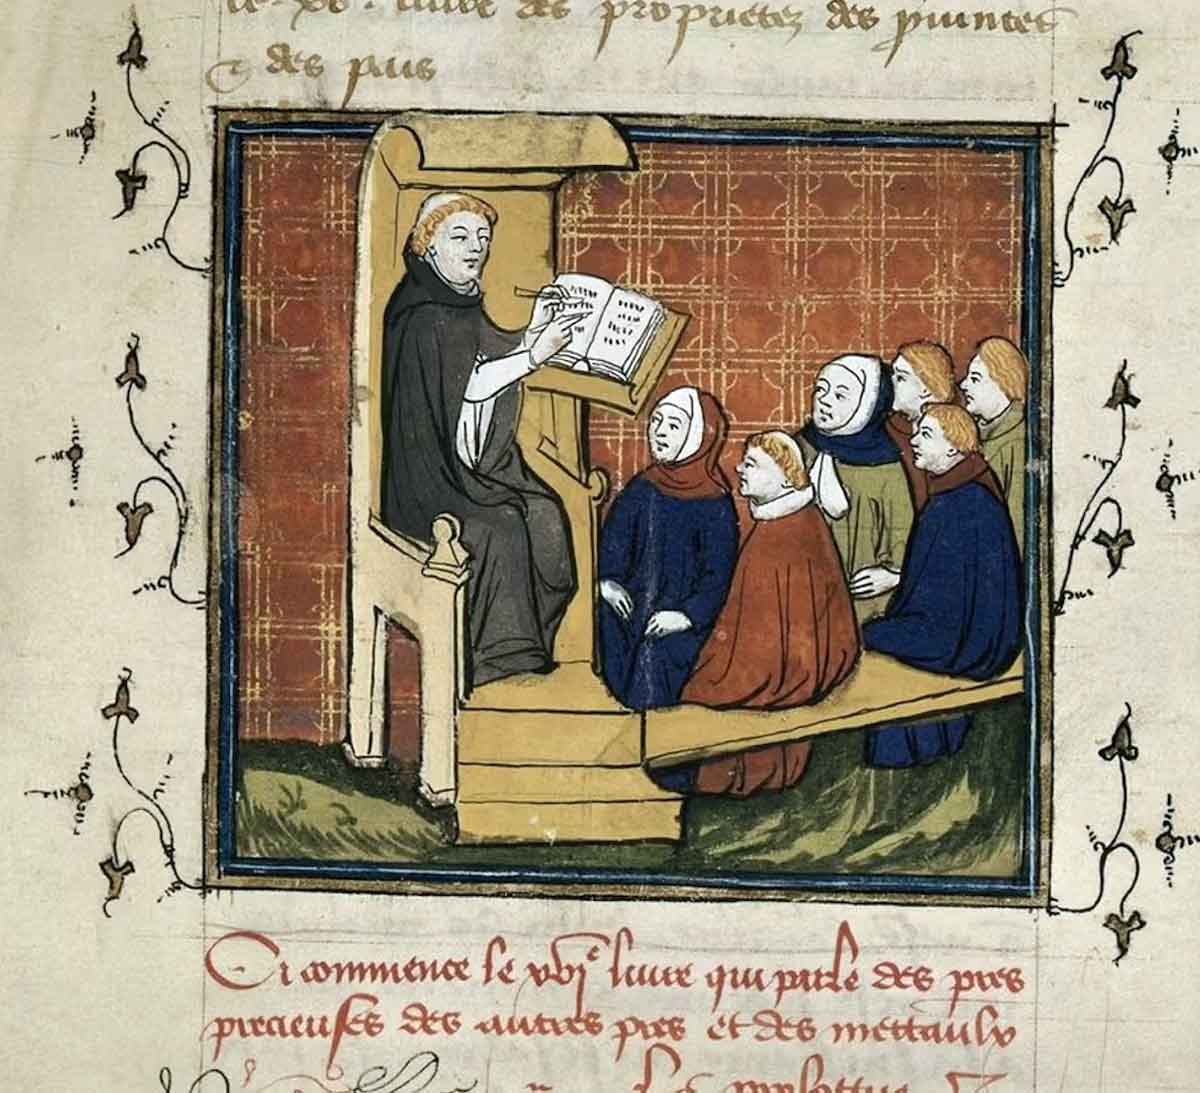 le xv. liure des proprietez des prouinces
& des pais
Ci commence le xvie liure qui parle des pres
precieuses des autres pres et des mettaulx